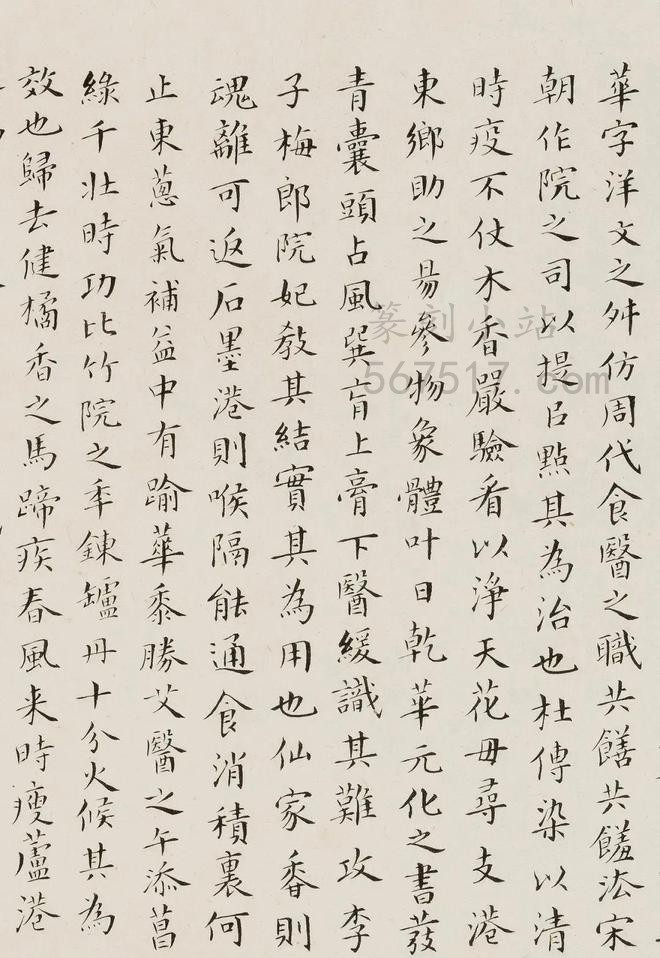 華字洋文之舛仿周代食醫之職共饍共饈法宋
朝作院之司以提以點其為治也杜傳染以清
時疫不仗木香嚴驗看以淨天花毋尋支港
東鄉助之昜參物象體叶日乾華元化之書發
青囊頭占風巽肓上膏下醫緩識其難攻李
子梅郎院妃教其結實其為用也仙家香則
魂離可返石墨港則喉隔能通食消積裏何
止東蔥氣補益中有踰華黍勝艾醫之午添菖
綠千壯時功比竹院之年鍊鑪丹十分火候其為
效也歸去健橘香之馬蹄疾春風来時瘦蘆港
篆刻小站
567517.com